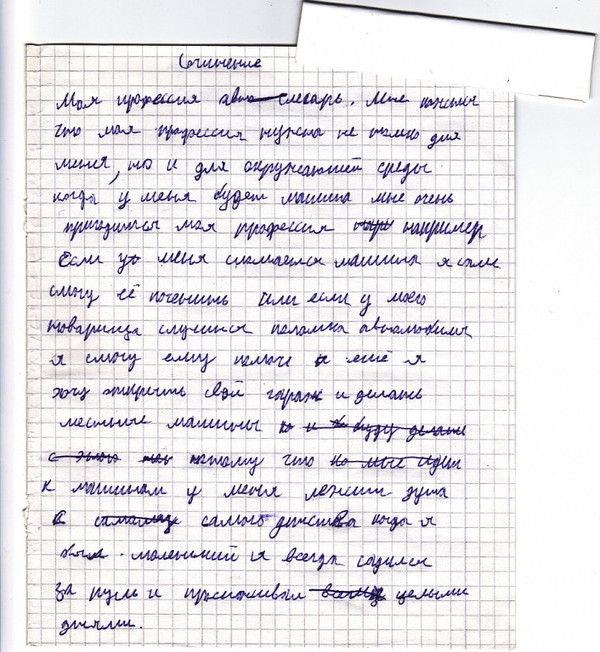 Сочинение
Моя професия авто слесарь. Мне
что моя професия нужна не толко для
меня, но и для окружающей среды
когда у меня будет машина мне очень
пригодится моя професия например
Если у меня сломается машина я сам
смогу её починить или если у моего
товарища случится поломка автомобиля
я смогу ему помоч и ещё я
хочу открыть свой гараж и делать
машины и я буду делать
потому что
к машинам у меня лежит душа
с самого детства когда я
был маленький я всегда садился
за руль и просиживал целыми
днями.